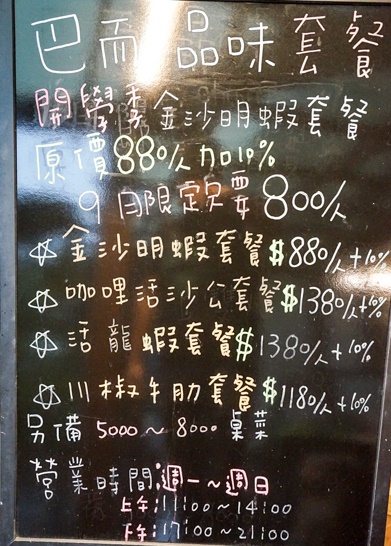 巴而品味套餐
開學季金沙明蝦套餐
原價880/人加10%
9月限定只要800/人
☆金沙明蝦套餐$880/人+10%
☆咖哩活沙公套餐$1380/人+10%
☆活龍蝦套餐$1380/人+10%
☆川椒牛肋套餐$1180/人+10%
另備5000~8000桌菜
營業時間:週一~週日
上午:11:00~14:00
下午:17:00~21:00